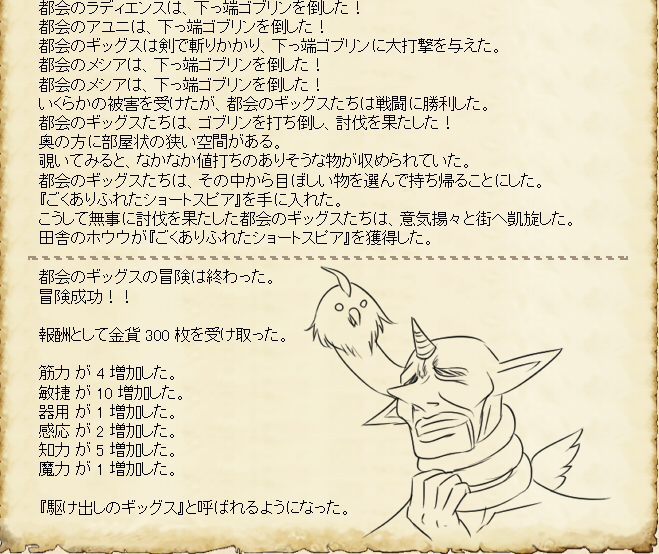 都会のラディエンスは、下っ端ゴブリンを倒した！
都会のアユニは、下っ端ゴブリンを倒した！
都会のギッグスは剣で斬りかかり、下っ端ゴブリンに大打撃を与えた。
都会のメシアは、下っ端ゴブリンを倒した！
都会のメシアは、下っ端ゴブリンを倒した！
いくらかの被害を受けたが、都会のギッグスたちは戦闘に勝利した。
都会のギッグスたちは、ゴブリンを打ち倒し、討伐を果たした！
奥の方に部屋状の狭い空間がある。
覗いてみると、なかなか値打ちのありそうな物が収められていた。
都会のギッグスたちは、その中から目ぼしい物を選んで持ち帰ることにした。
『ごくありふれたショートスピア』を手に入れた。
こうして無事に討伐を果たした都会のギッグスたちは、意気揚々と街へ凱旋した。
田舎のホウウが『ごくありふれたショートスピア』を獲得した。
都会のギッグスの冒険は終わった。
冒険成功！！
報酬として金貨 300 枚を受け取った。
筋力 が 4 増加した。
敏捷 が 10 増加した。
器用 が 1 増加した。
感応 が 2 増加した。
知力 が 5 増加した。
魔力 が 1 増加した。
『駆け出しのギッグス』と呼ばれるようになった。